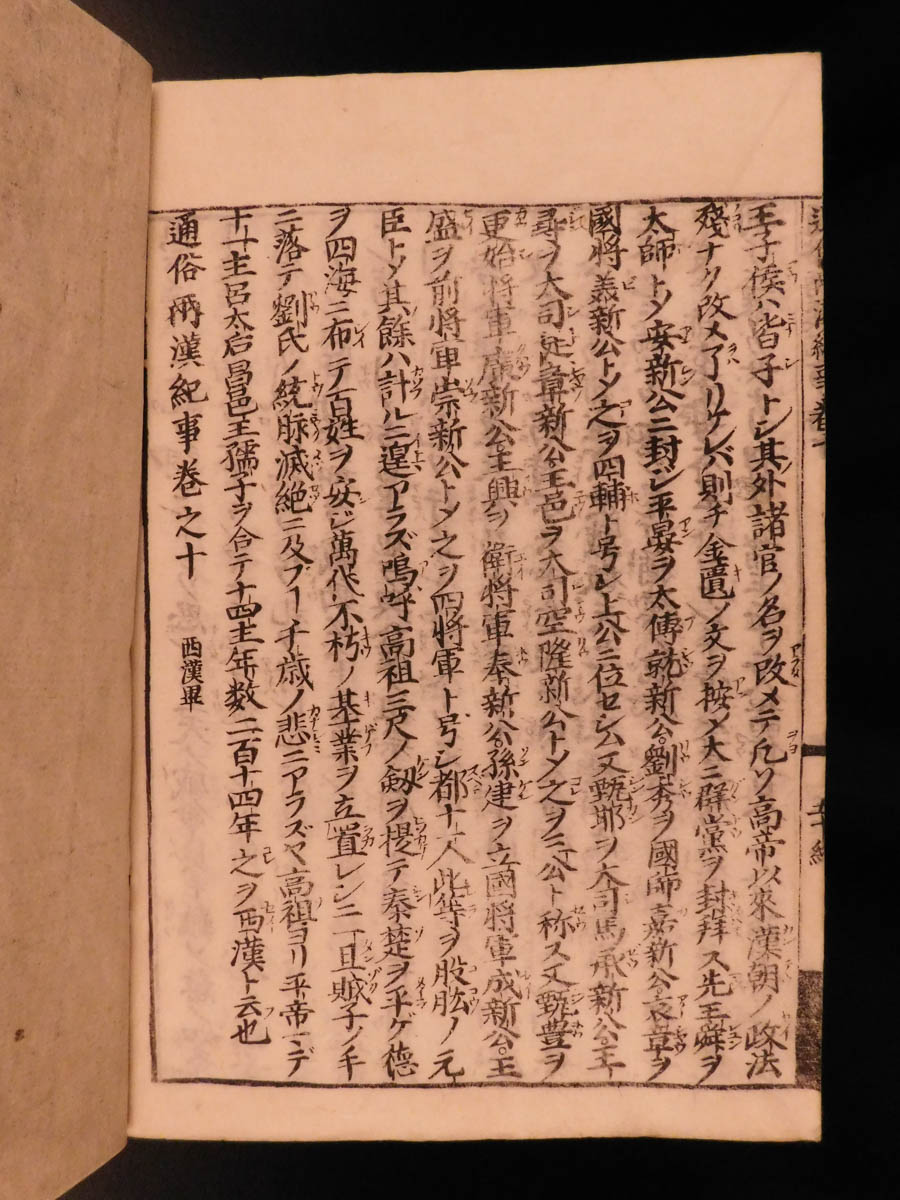 王子侯ハ皆子トシ其外諸官ノ名ヲ改メテ凡ソ高帝以來漢朝ノ政法
殘ナク改メ了リケレバ則チ金匱ノ文ヲ按ノ大ニ群黨ヲ封拜ス先王舜ヲ
太師トノ安新公ニ封ジ平晏ヲ太傅就新公劉秀ヲ國師嘉新公哀章ヲ
國將美新公トノ之ヲ四輔ト号シ上公ニ位セシム又甄邯ヲ大司馬承新公王
尋ヲ大司徒章新公王邑ヲ大司空隆新公トノ之ヲ三公ト称ス又甄豊ヲ
更始将軍廣新公王興ヲ衛将軍奉新公孫建ヲ立國将軍成新公王
盛ヲ前将軍崇新公トノ之ヲ四将軍ト号シ都十一人此等ヲ股肱ノ元
臣トノ其餘ハ計ルニ遑アラズ嗚呼高祖三尺ノ剱ヲ提テ秦楚ヲ平ゲ德
ヲ四海ニ布テ百姓ヲ安ジ萬代不朽ノ基業ヲ立置レシニ一旦賊子ノ手
ニ落テ劉氏ノ統脉滅絶ニ及ブヿ千歳ノ悲ニアラズヤ高祖ヨリ平帝マデ
十一主呂太后昌邑王孺子ヲ合テ十四主年数二百十四年之ヲ西漢ト云也
通俗兩漢紀事巻之十 西漢畢